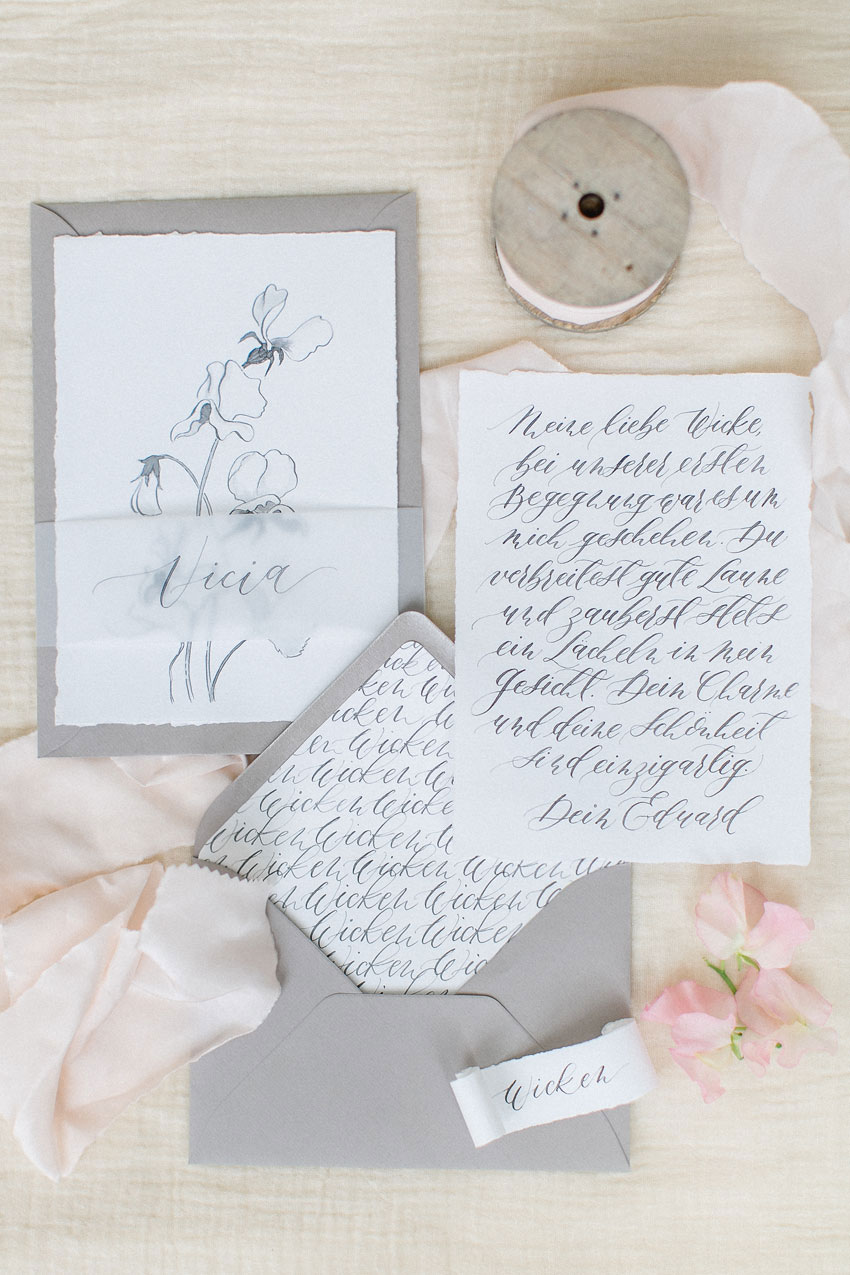 Vicia
Meine liebe Wicke,
bei unserer ersten
Begegnung war es um
mich geschehen. Du
verbreitest gute Laune
und zauberst stets
ein Lächeln in mein
Gesicht. Dein Charme
und deine Schönheit
sind einzigartig.
Dein Eduard
Wicken
Wicken Wicken
Wicken Wicken
Wicken
Wicken